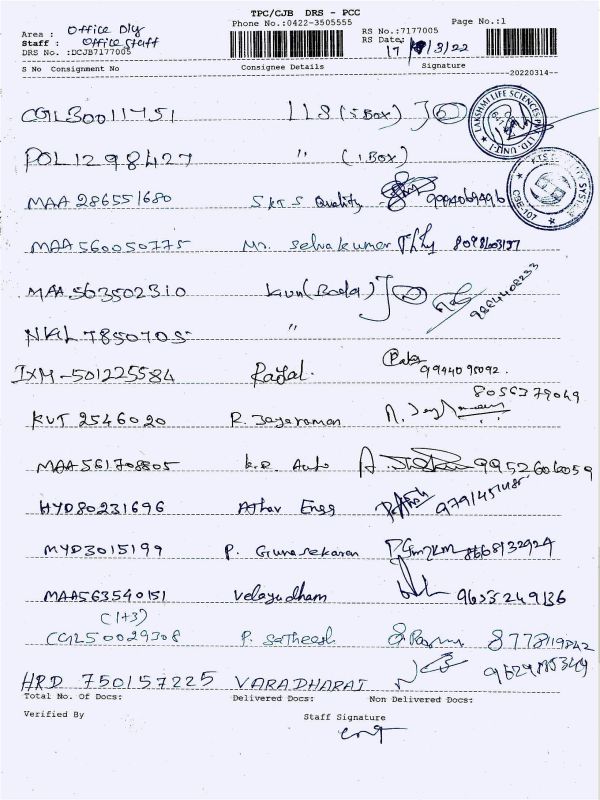 TPC/CJB DRS - PCC
Area : Office Dly Phone No.:0422-3505555 Page No.:1
Staff : Office Staff RS No.:7177005
DRS No. :DCJB7177005 RS Date: 17/3/22
S No Consignment No Consignee Details Signature
--20220314--
CGL30011451 LLS (5 Box)
LAKSHMI LIFE SCIENCES PVT. LTD. UNIT-I
POL1298427 " (1 Box)
MAA 286551680 SKTS Quality 9994069496
CBE-107
MAA 560050775 Mr. Selvakumar
MAA 563502310 Kun (Boda) 9884408233
NKL 7850705 "
IXM-501225584 9944095092.
KVT 2546020 R. Jayaraman 8056379049
MAA 561708805 K.R. Auto 9952606059
HYD80231696 Athav Engg
MYD3015199 P. Gunasekaran 8668132924
MAA563540151 Velayudham 9633249136
(1+3)
CGL50029308 P. Satheesh
HRD 750157225 VARADHARAJ
Total No. Of Docs: Delivered Docs: Non Delivered Docs:
Verified By Staff Signature